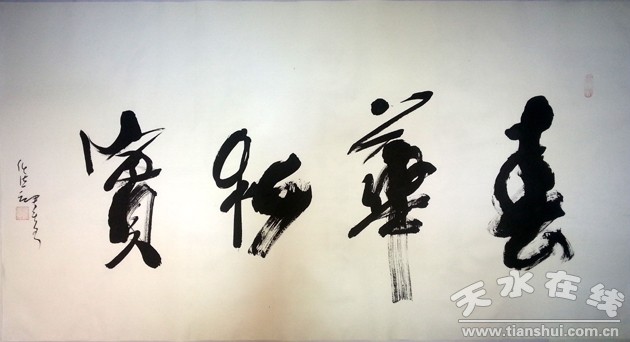 春華秋實
天水在线
www.tianshui.com.cn